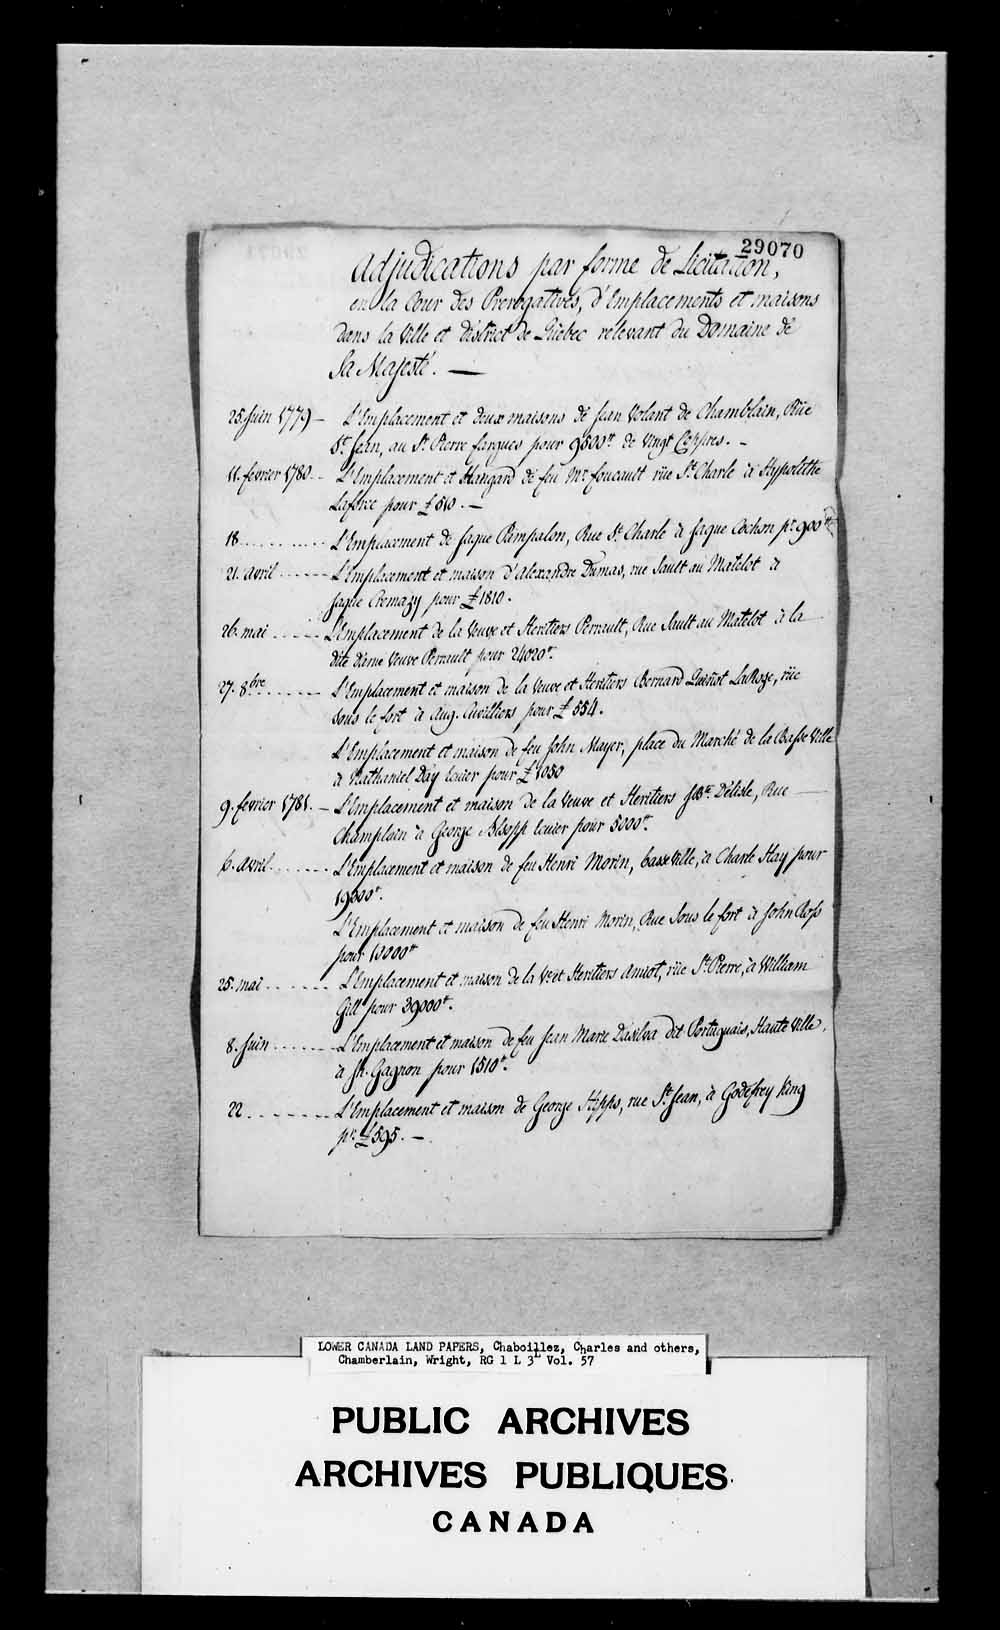 29070
Adjudications par forme de Licitation,
en la Cour des Prerogatives, d'Emplacements et maisons
dans la Ville et district de Quebec relevant du Domaine de
Sa Majesté. —
25. Juin 1779 – L'Emplacement et deux maisons de Jean Volant de Chamblain, Rüe
St. Jean, au Sr. Pierre fargues pour 9500tt. de vingt Coppres. –
11. fevrier 1780. – L'Emplacement et Hangard de feu Mr. foucault rüe St. Charle à Hypolithe
Laforce pour £510. —
18. . . . . . . . . . L'Emplacement de Jaque Pampalon, Rue St. Charle à Jaque Cochon pr. 900tt
21. avril . . . . . – L'Emplacement et maison d'Alexandre Dumas, rue Sault au Matelot à
Jaque Cremazy pour £1810.
26. mai . . . . . – L'Emplacement de la Veuve et Heritiers Perrault, Rue Sault au Matelot à la
dite dame Veuve Perrault pour 24020tt.
27. 8bre . . . . . — L'Emplacement et maison de la Veuve et Heritiers Bernard LaRoze, rüe
sous le fort à Aug. pour £554.
L'Emplacement et maison de feu John Mayer, place du Marché de la Basse Ville
à Nathaniel Day pour £1050
9. fevrier 1781. – L'Emplacement et maison de la Veuve et Heritiers JBte. Délisle, Rue —
Champlain à George Alsopp pour 5000tt.
6. avril . . . . . . – L'Emplacement et maison de feu Henri Morin, basse Ville, à Charle Hay pour
19000tt.
L'Emplacement et maison de feu Henri Morin, Rue Sous le fort à John Ross
pour 10000tt
25. mai . . . . . . L'Emplacement et maison de la Ve. et Heritiers Amiot, rüe St. Pierre, à William
Gill pour 39000tt.
8. Juin . . . . . . – L'Emplacement et maison de feu Jean Marie Dasilva dit Portuguais, Haute Ville,
à Jh. Gagnon pour 1510tt.
22 . . . . . . . – L'Emplacement et maison de George Hipps, rue St. Jean, à Godefrey King
pr. £595. —
LOWER CANADA LAND PAPERS, Chaboillez, Charles and others,
Chamberlain, Wright, RG 1 L 3L Vol. 57
PUBLIC ARCHIVES
ARCHIVES PUBLIQUES
CANADA